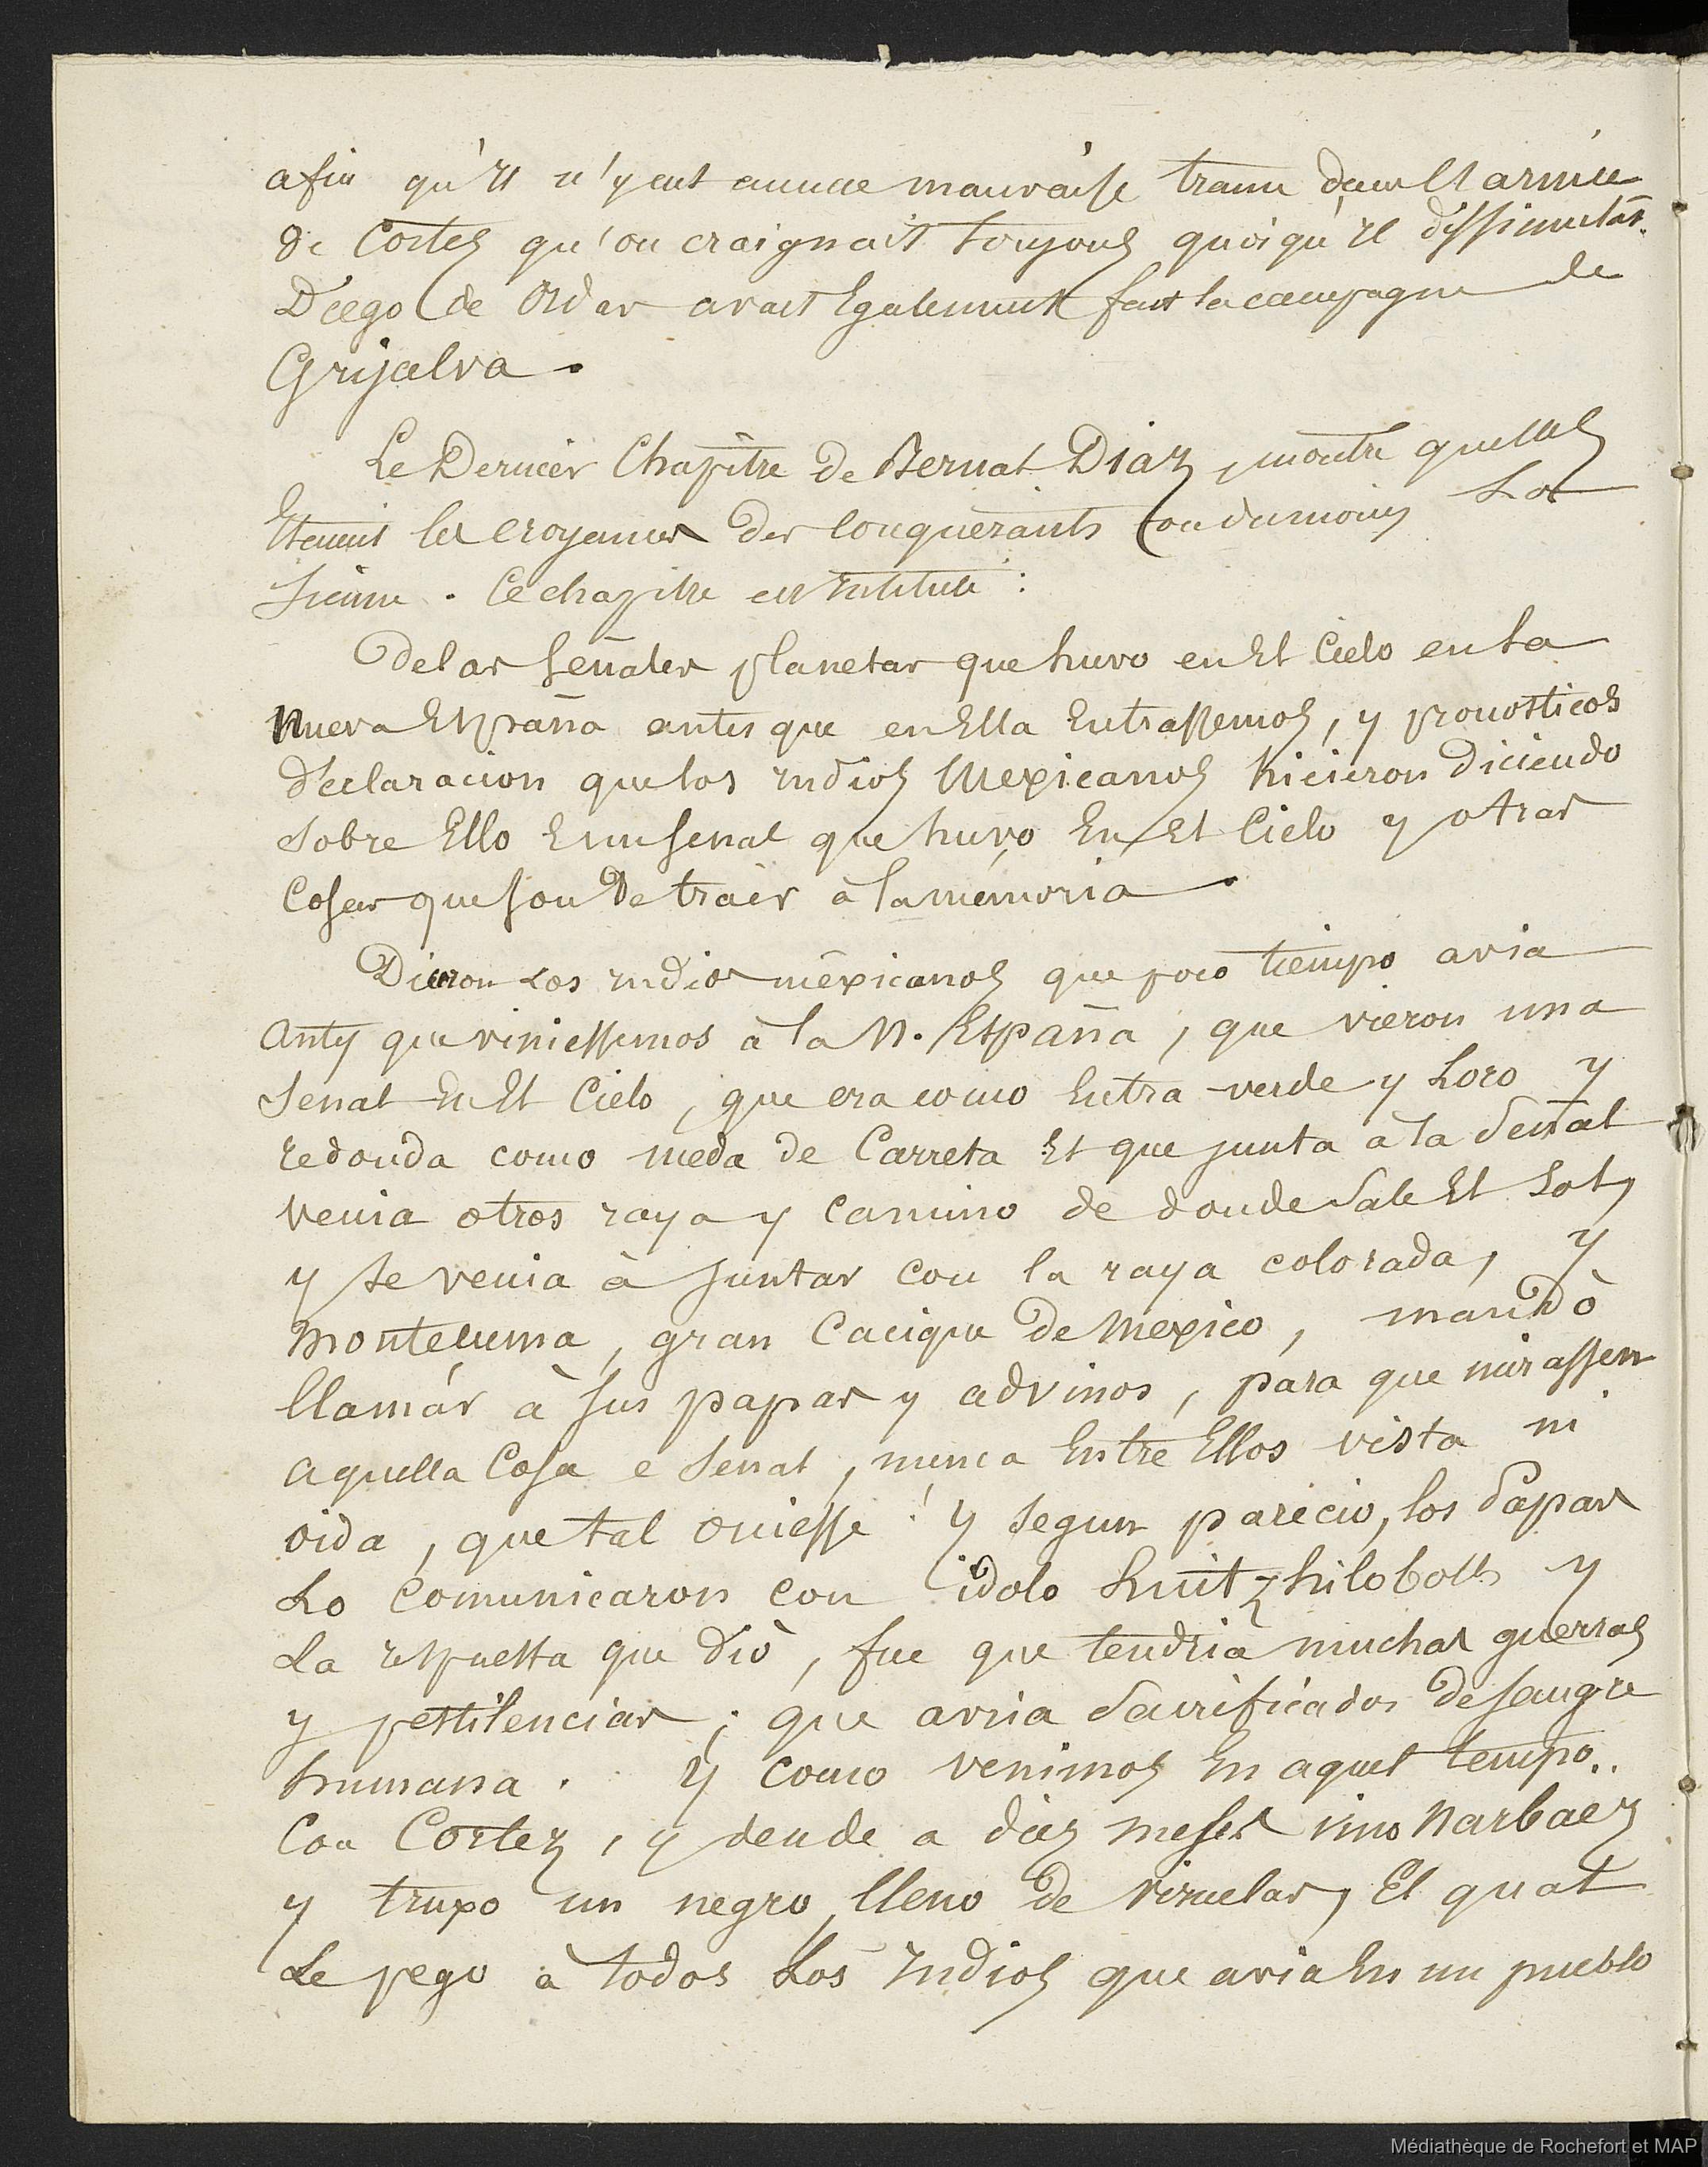 afin qu'il n'y eut aucune mauvaise trame dans l'armée
de Cortes qu'on craignait toujours quoiqu'il dissimulât.
Diego de Ordas avait Egalement fait la campagne de
Grijalva.
Le Dernier Chapitre de Bernal Diaz, montre quelles
Etaient les croyances des conquérants (ou du moins La
sienne. Ce chapitre est Intitulé :
De las señales planetas que huvo en El Cielo en la
Nueva España antes que en Ella Entrassemos, y pronosticos
declaracion que los indios Mexicanos hicieron Diciendo
sobre Ello E un senal que huvo En El Cielo y otras
Cosas que son De traèr à la memoria.
Dieron Los indios mexicanos que poco tiempo avia
Antes que viniessemos à la N. España, que vieron una
Senal En El Cielo, que era como Entra verde y Loro y
redonda como rueda de Carreta El que junta à la Señal
venia otros raya y camino de donde Sale El Sol,
y se venia à Juntar con la raya colorada, y
Montecuma, gran Cacique De Mexico, mandò
llamár à sus papas y advinos, para que mirassen
aquella Cosa e Senal, nunca Entre Ellos vista ni
oida, que tal ouiesse ! Y segun parecio, los Papas
Lo comunicaron con idolo Huitzhilobolls y
La respuesta que Diò, fue que tendria muchas guerras
y pestilencias ; que avria Sacrificados De sangre
humana. Y como venimos En aquel tempo..
Con Cortez, y dende a diez meses vino Narbaez
y truxo un negro, lleno de viruelas, El qual
Le pego à todos Los Indios que avia En un pueblo
Médiathèque de Rochefort et MAP